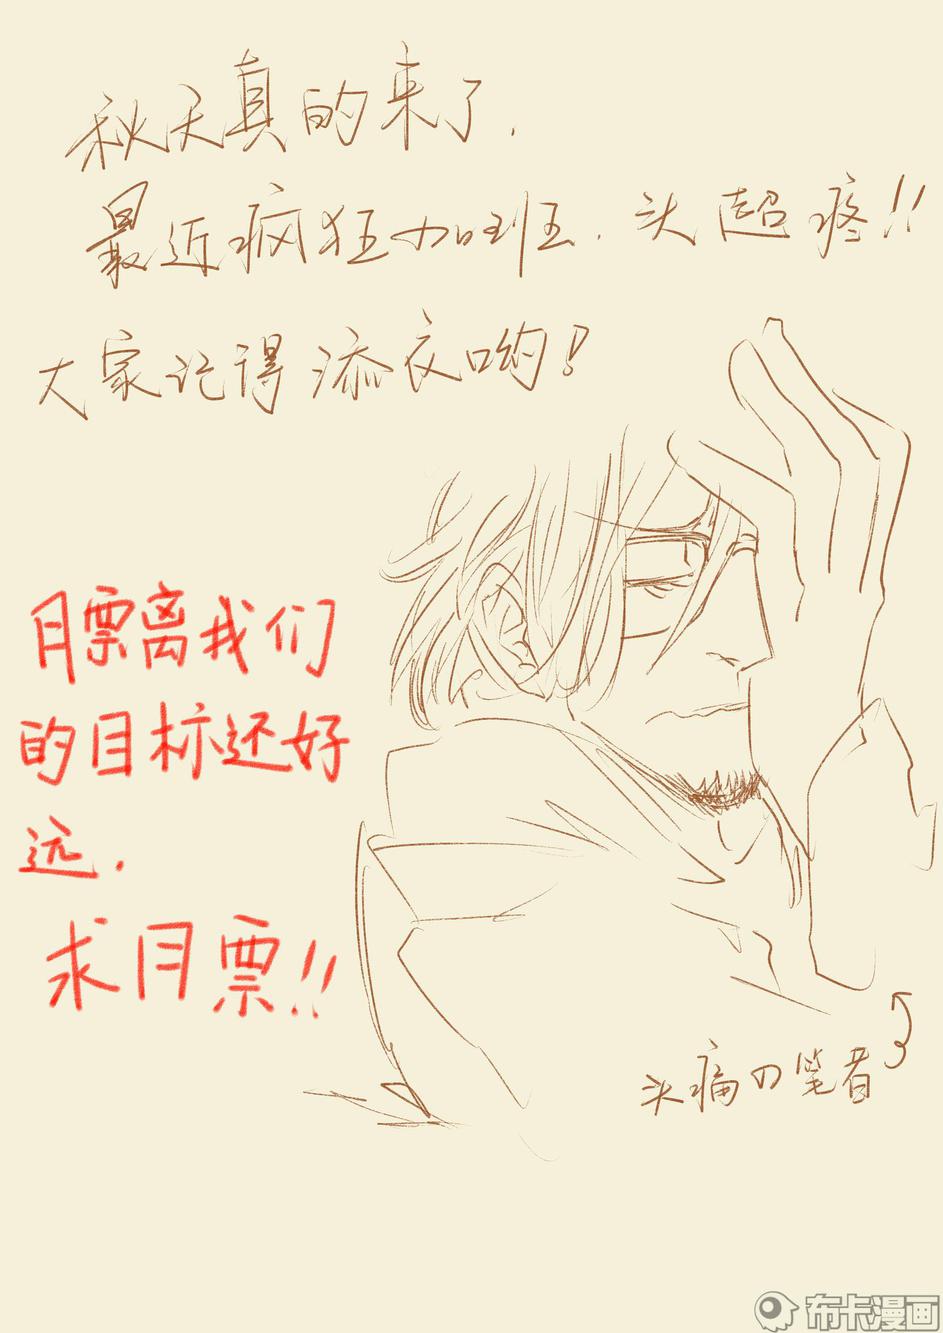 秋天真的来了.
最近疯狂加班.头超疼!!
大家记得添衣哟!
月票离我们
的目标还好
远.
求月票!!
头痛の笔者
布卡漫画